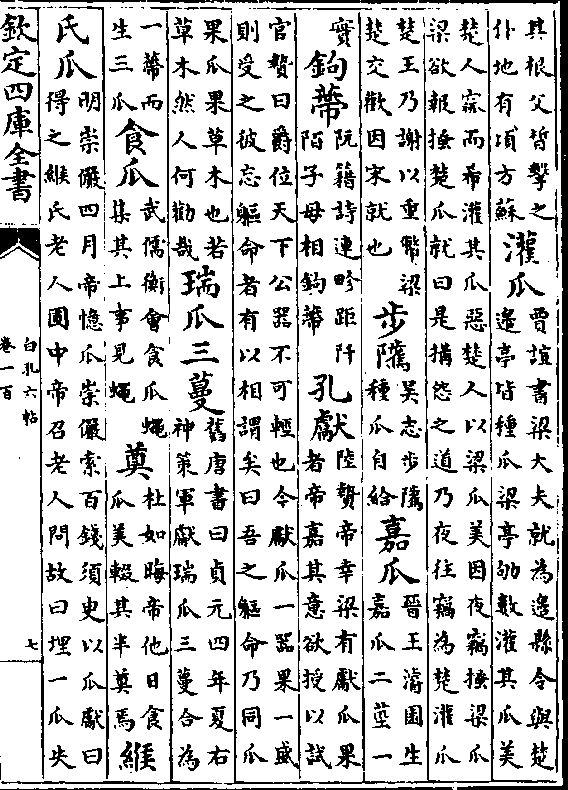 其根父晳擊之仆地有頃方蘇灌瓜賈誼書梁大夫就為邊縣令與楚邊亭皆種瓜梁亭劬數灌其瓜美
楚人窳而希灌其瓜惡楚人以梁瓜美因夜竊搔梁瓜梁欲報搔楚瓜就曰是搆怨之道乃夜往竊為楚灌瓜
楚王乃謝以重幣梁楚交歡因宋就也步隲吳志步隲種瓜自給嘉瓜晉王濬園生嘉瓜二莖一
實鉤蔕阮籍詩連畛距阡陌子母相鉤蔕孔獻陸贄帝幸梁有獻瓜果者帝嘉其意欲授以試
官贄曰爵位天下公器不可輕也今獻瓜一器果一盛則受之彼忘軀命者有以相謂矣曰吾之軀命乃同瓜
果瓜果草木也若草木然人何勸哉瑞瓜三蔓舊唐書曰貞元四年夏右神策軍獻瑞瓜三蔓合為
一蔕而生三瓜食瓜武儒衡會食瓜蠅集其上事見蠅奠杜如晦帝他日食瓜美輟其半奠焉緱
氏瓜明崇儼四月帝憶瓜崇儼索百錢須臾以瓜獻曰得之緱氏老人圃中帝召老人問故曰埋一瓜失
欽定四庫全書
白孔六帖
卷一百
七